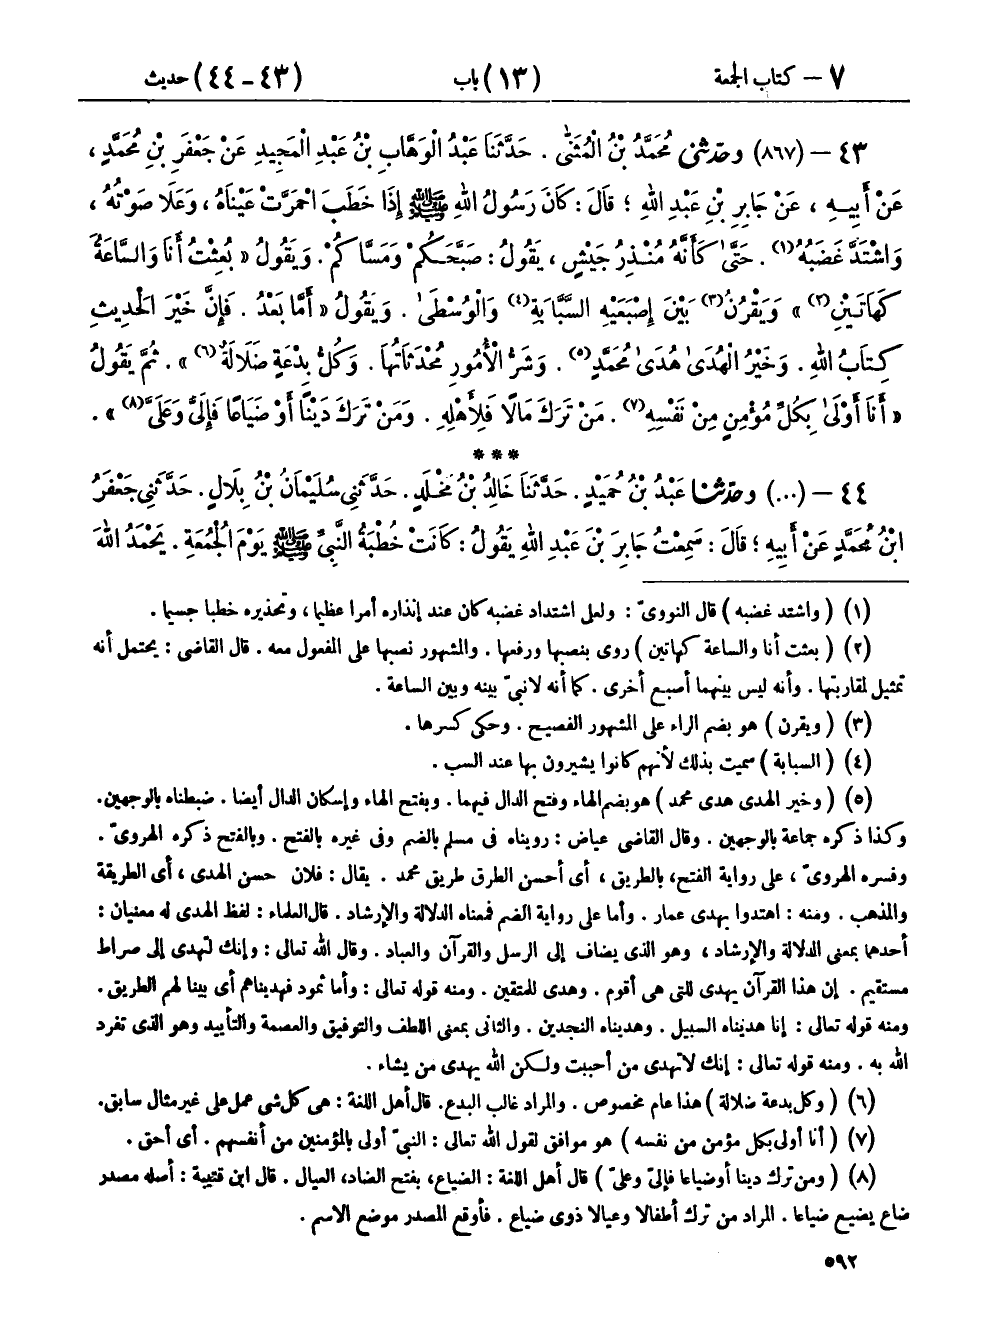 ٧ – كتاب الجمعة (١٣) باب (٤٣ – ٤٤) حديث
٤٣ – (٨٦٧) وحدثنى مُحَمَّدُ بْنُ الْمُثَنَّىٰ . حَدَّثَنَا عَبْدُ الْوَهَّابِ بْنُ عَبْدِ الْمَجِيدِ عَنْ جَعْفَرِ بْنِ مُحَمَّدٍ ،
عَنْ أَبِيهِ ، عَنْ جَابِرِ بْنِ عَبْدِ اللهِ ؛ قَالَ : كَانَ رَسُولُ اللهِ ﷺ إِذَا خَطَبَ احْمَرَّتْ عَيْنَاهُ ، وَعَلَا صَوْتُهُ ،
وَاشْتَدَّ غَضَبُهُ(١) . حَتَّىٰ كَأَنَّهُ مُنْذِرُ جَيْشٍ ، يَقُولُ : صَبَّحَكُمْ وَمَسَّاكُمْ . وَيَقُولُ « بُعِثْتُ أَنَا وَالسَّاعَةُ
كَهَاتَيْنِ(٢) » وَيَقْرُنُ(٣) بَيْنَ إِصْبَعَيْهِ السَّبَّابَةِ(٤) وَالْوُسْطَىٰ . وَيَقُولُ « أَمَّا بَعْدُ . فَإِنَّ خَيْرَ الْحَدِيثِ
كِتَابُ اللهِ . وَخَيْرُ الْهُدَىٰ هُدَىٰ مُحَمَّدٍ(٥) . وَشَرُّ الْأُمُورِ مُحْدَثَاتُهَا . وَكُلُّ بِدْعَةٍ ضَلَالَةٌ(٦) » . ثُمَّ يَقُولُ
« أَنَا أَوْلَىٰ بِكُلِّ مُؤْمِنٍ مِنْ نَفْسِهِ(٧) . مَنْ تَرَكَ مَالًا فَلِأَهْلِهِ . وَمَنْ تَرَكَ دَيْنًا أَوْ ضَيَاعًا فَإِلَىَّ وَعَلَىَّ(٨) » .
***
٤٤ – (...) وحدثنا عَبْدُ بْنُ حُمَيْدٍ . حَدَّثَنَا خَالِدُ بْنُ مَخْلَدٍ . حَدَّثَنِى سُلَيْمَانُ بْنُ بِلَالٍ . حَدَّثَنِى جَعْفَرُ
ابْنُ مُحَمَّدٍ عَنْ أَبِيهِ ؛ قَالَ : سَمِعْتُ جَابِرَ بْنَ عَبْدِ اللهِ يَقُولُ : كَانَتْ خُطْبَةُ النَّبِىِّ ﷺ يَوْمَ الْجُمُعَةِ . يَحْمَدُ اللهَ
(١) ( واشتد غضبه ) قال النووىّ : ولعل اشتداد غضبه كان عند إنذاره أمرا عظيما ، وتحذيره خطبا جسيما .
(٢) ( بعثت أنا والساعة كهاتين ) روى بنصبها ورفعها . والمشهور نصبها على المفعول معه . قال القاضى : يحتمل أنه
تمثيل لمقاربتها . وأنه ليس بينهما أصبع أخرى . كما أنه لا نبىّ بينه وبين الساعة .
(٣) ( ويقرن ) هو بضم الراء على المشهور الفصيح . وحكى كسرها .
(٤) ( السبابة ) سميت بذلك لأنهم كانوا يشيرون بها عند السب .
(٥) ( وخير الهدى هدى محمد ) هو بضم الهاء وفتح الدال فيهما . وبفتح الهاء وإسكان الدال أيضا . ضبطناه بالوجهين .
وكذا ذكره جماعة بالوجهين . وقال القاضى عياض : رويناه فى مسلم بالضم وفى غيره بالفتح . وبالفتح ذكره الهروىّ .
وفسره الهروىّ ، على رواية الفتح، بالطريق ، أى أحسن الطرق طريق محمد . يقال : فلان حسن الهدى ، أى الطريقة
والمذهب . ومنه : اهتدوا بهدى عمار . وأما على رواية الضم فمعناه الدلالة والإرشاد . قال العلماء : لفظ الهدى له معنيان :
أحدهما بمعنى الدلالة والإرشاد ، وهو الذى يضاف إلى الرسل والقرآن والعباد . وقال الله تعالى : وإنك لتهدى إلى صراط
مستقيم . إن هذا القرآن يهدى للتى هى أقوم . وهدى للمتقين . ومنه قوله تعالى : وأما ثمود فهديناهم أى بينا لهم الطريق .
ومنه قوله تعالى : إنا هديناه السبيل . وهديناه النجدين . والثانى بمعنى اللطف والتوفيق والعصمة والتأييد وهو الذى تفرد
الله به . ومنه قوله تعالى : إنك لا تهدى من أحببت ولكن الله يهدى من يشاء .
(٦) ( وكل بدعة ضلالة ) هذا عام مخصوص . والمراد غالب البدع . قال أهل اللغة : هى كل شئ عمل على غير مثال سابق.
(٧) ( أنا أولى بكل مؤمن من نفسه ) هو موافق لقول الله تعالى : النبىّ أولى بالمؤمنين من أنفسهم . أى أحق .
(٨) ( ومن ترك دينا أو ضياعا فإلىّ وعلىّ ) قال أهل اللغة : الضياع، بفتح الضاد، العيال . قال ابن قتيبة : أصله مصدر
ضاع يضيع ضياعا . المراد من ترك أطفالا وعيالا ذوى ضياع . فأوقع المصدر موضع الاسم .
٥٩٢